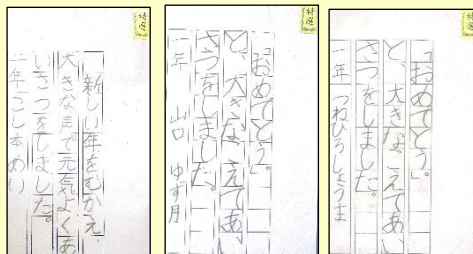 特選
新しい年をむかえ、
大きな声で元気よくあ
いさつをしました。
二年 こし本 めい
特選
「おめでとう。」
と、大きなこえであい
さつをしました。
一年 山口 ゆず月
特選
「おめでとう。」
と、大きなこえであい
さつをしました。
一年 つねひろ しょうま